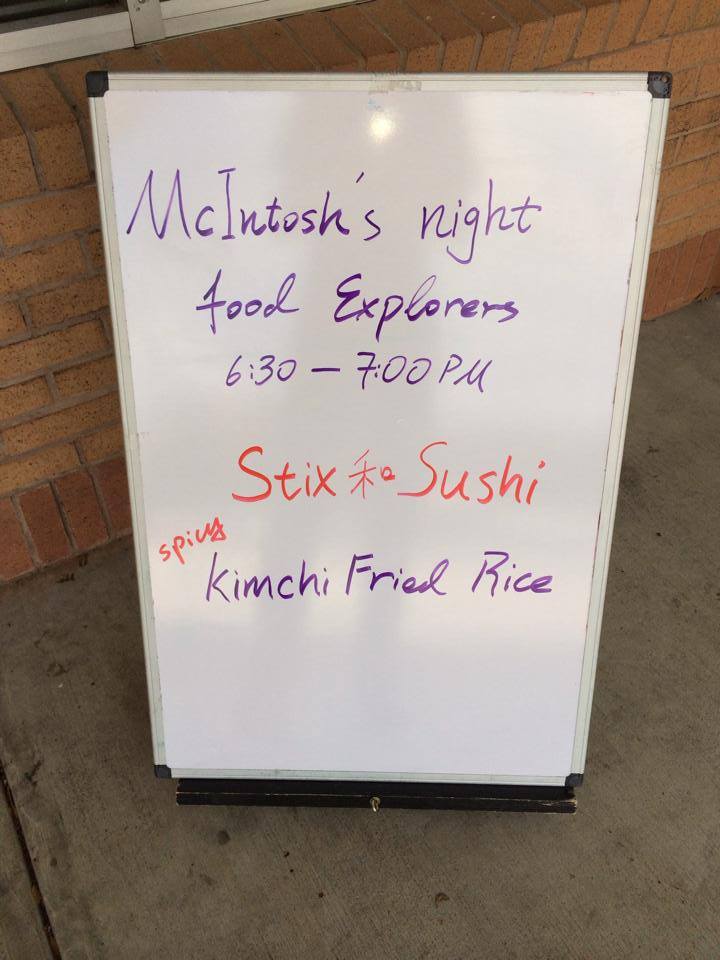 McIntosh's night
food Explorers
6:30 – 7:00 PM
Stix 和 Sushi
spicy
Kimchi Fried Rice